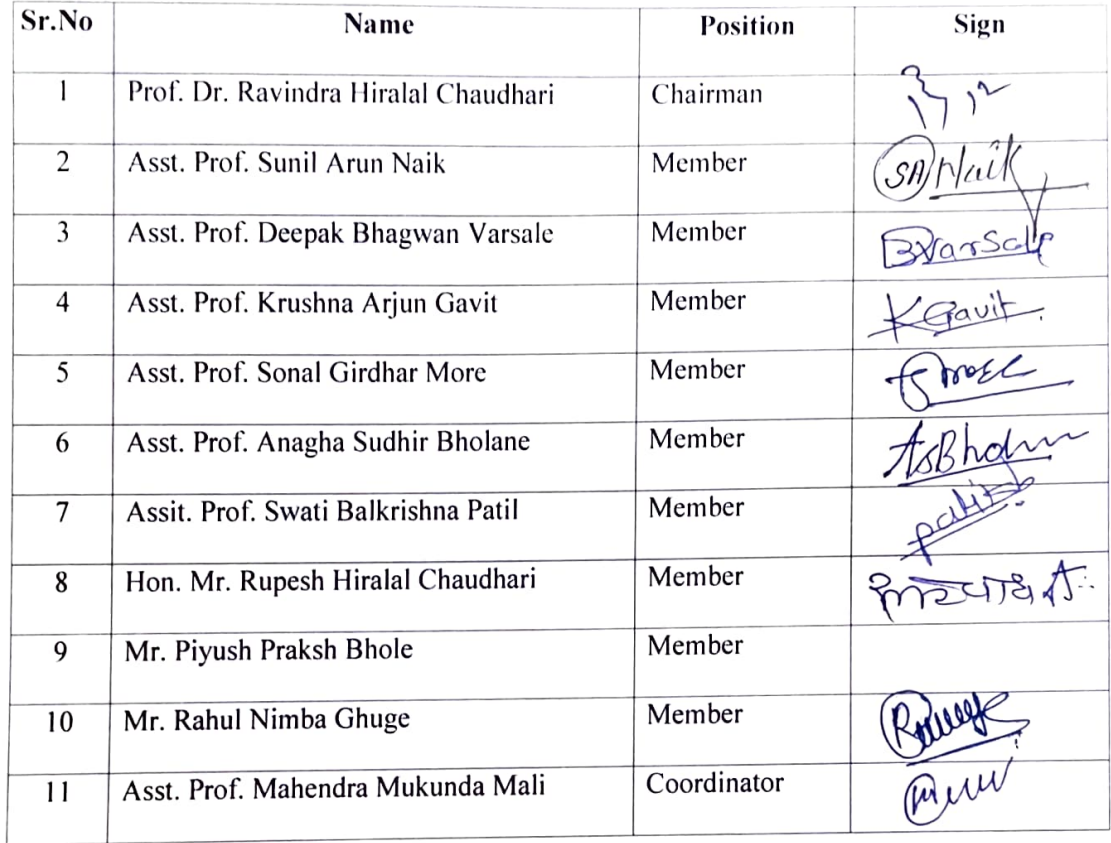 Sr.No Name Position Sign
1 Prof. Dr. Ravindra Hiralal Chaudhari Chairman
2 Asst. Prof. Sunil Arun Naik Member SANaik
3 Asst. Prof. Deepak Bhagwan Varsale Member BVarsale
4 Asst. Prof. Krushna Arjun Gavit Member KGavit.
5 Asst. Prof. Sonal Girdhar More Member
6 Asst. Prof. Anagha Sudhir Bholane Member
7 Assit. Prof. Swati Balkrishna Patil Member
8 Hon. Mr. Rupesh Hiralal Chaudhari Member
9 Mr. Piyush Praksh Bhole Member
10 Mr. Rahul Nimba Ghuge Member
11 Asst. Prof. Mahendra Mukunda Mali Coordinator